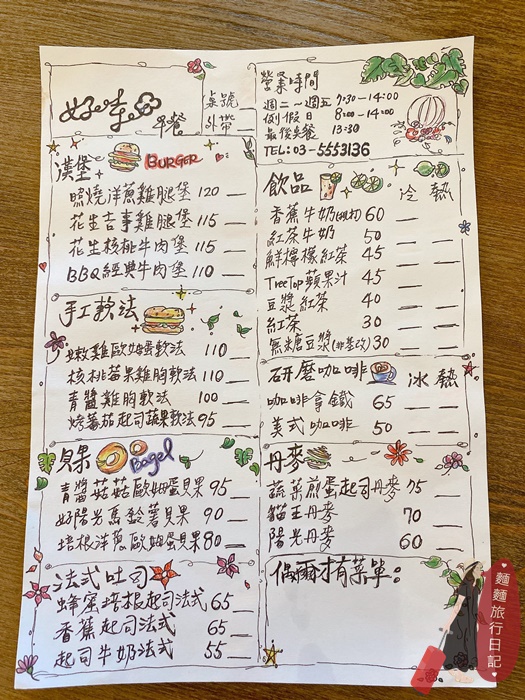 早餐
桌號
外帶
營業時間
週二~週五 7:30-14:00
例假日 8:00-14:00
最後點餐 13:30
TEL:03-5553136
漢堡 BURGER
照燒洋蔥雞腿堡 120
花生吉事雞腿堡 115
花生核桃牛肉堡 115
BBQ經典牛肉堡 110
手工軟法
嫩雞歐姆蛋軟法 110
核桃莓果雞胸軟法 110
青醬雞胸軟法 100
烤蕃茄起司蔬果軟法 95
貝果 Bagel
青醬菇菇歐姆蛋貝果 95
好陽光馬鈴薯貝果 90
培根洋蔥歐姆蛋貝果 80
法式吐司
蜂蜜培根起司法式 65
香蕉起司法式 65
起司牛奶法式 55
飲品 冷 熱
香蕉牛奶 60
紅茶牛奶 50
鮮檸檬紅茶 45
TreeTop蘋果汁 45
豆漿紅茶 40
紅茶 30
無糖豆漿(非基改) 30
研磨咖啡 冰 熱
咖啡拿鐵 65
美式咖啡 50
丹麥
蔬菜煎蛋起司丹麥 75
貓王丹麥 70
陽光丹麥 60
偶爾才有菜單:
麵麵旅行日記